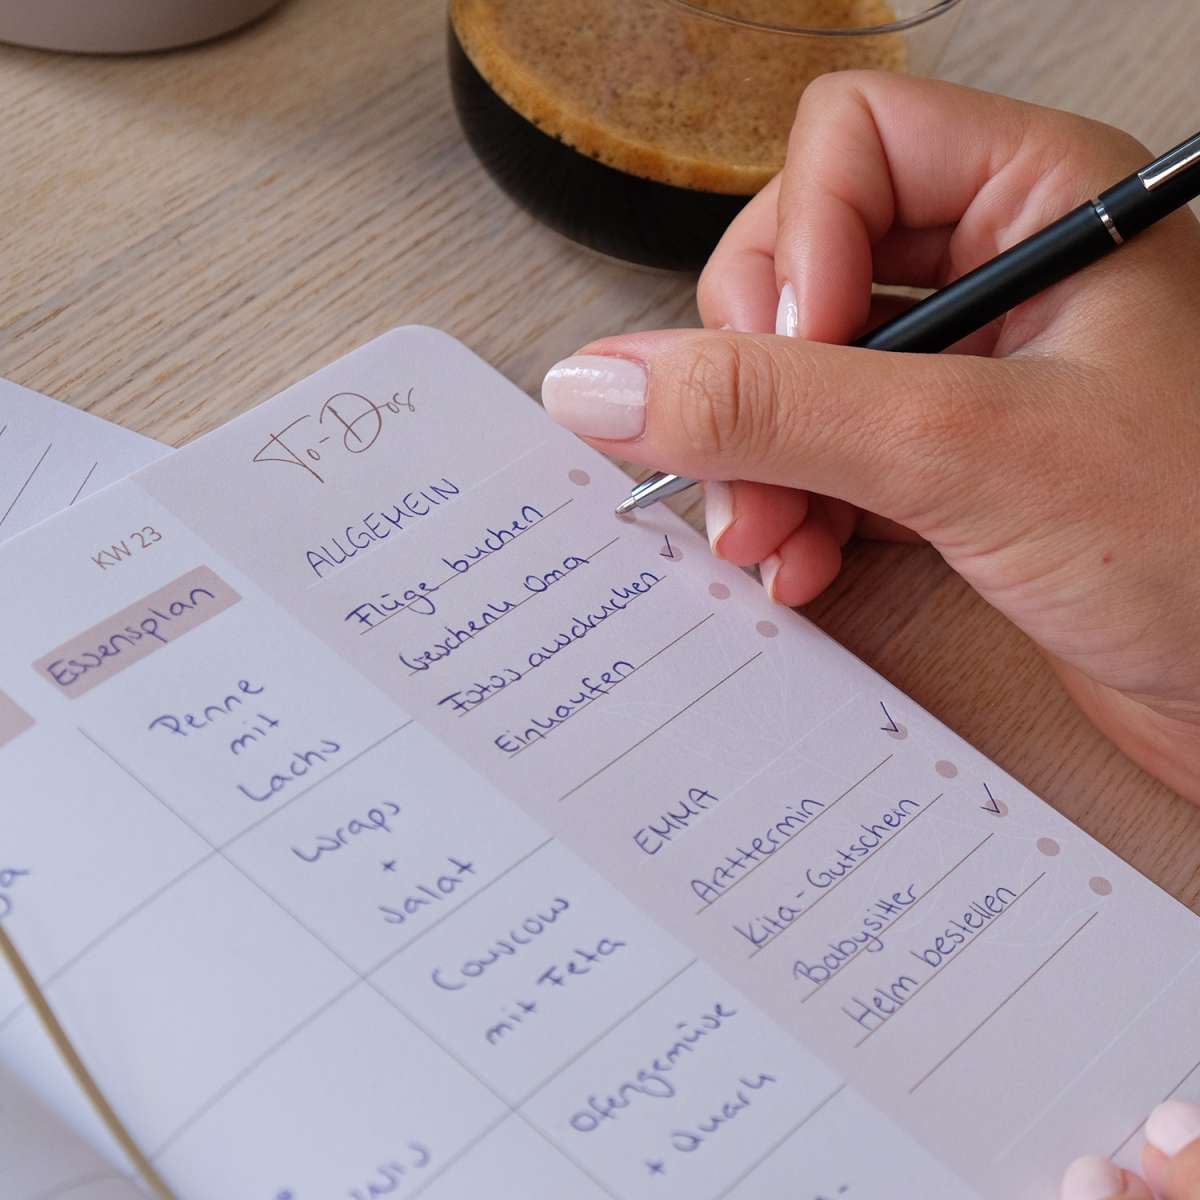 To-Dos
ALLGEMEIN
Flüge buchen
Geschenk Oma
Fotos ausdrucken
Einkaufen
EMMA
Arzttermin
Kita-Gutschein
Babysitter
Helm bestellen
KW 23
Essensplan
Penne
mit
Lachs
Wraps
+
Salat
Couscous
mit Feta
Ofengemüse
+ Quark